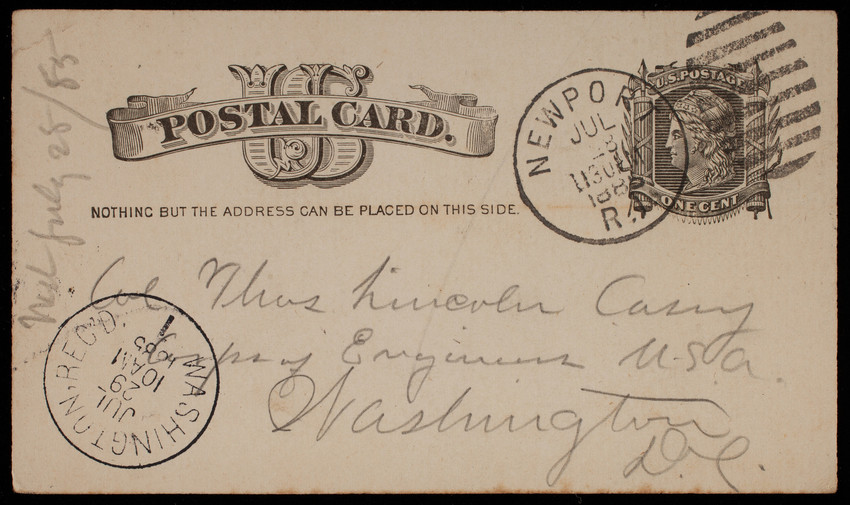 US
POSTAL CARD.
U.S. POSTAGE
ONE CENT
NOTHING BUT THE ADDRESS CAN BE PLACED ON THIS SIDE.
NEWPORT
JUL
28
1130AM
188
R.I.
July 28/85
Col. Thos Lincoln Casey
Corps of Engineers U.S.A.
Washington
D.C.
WASHINGTON. REC'D.
JUL
29
10 AM
1885